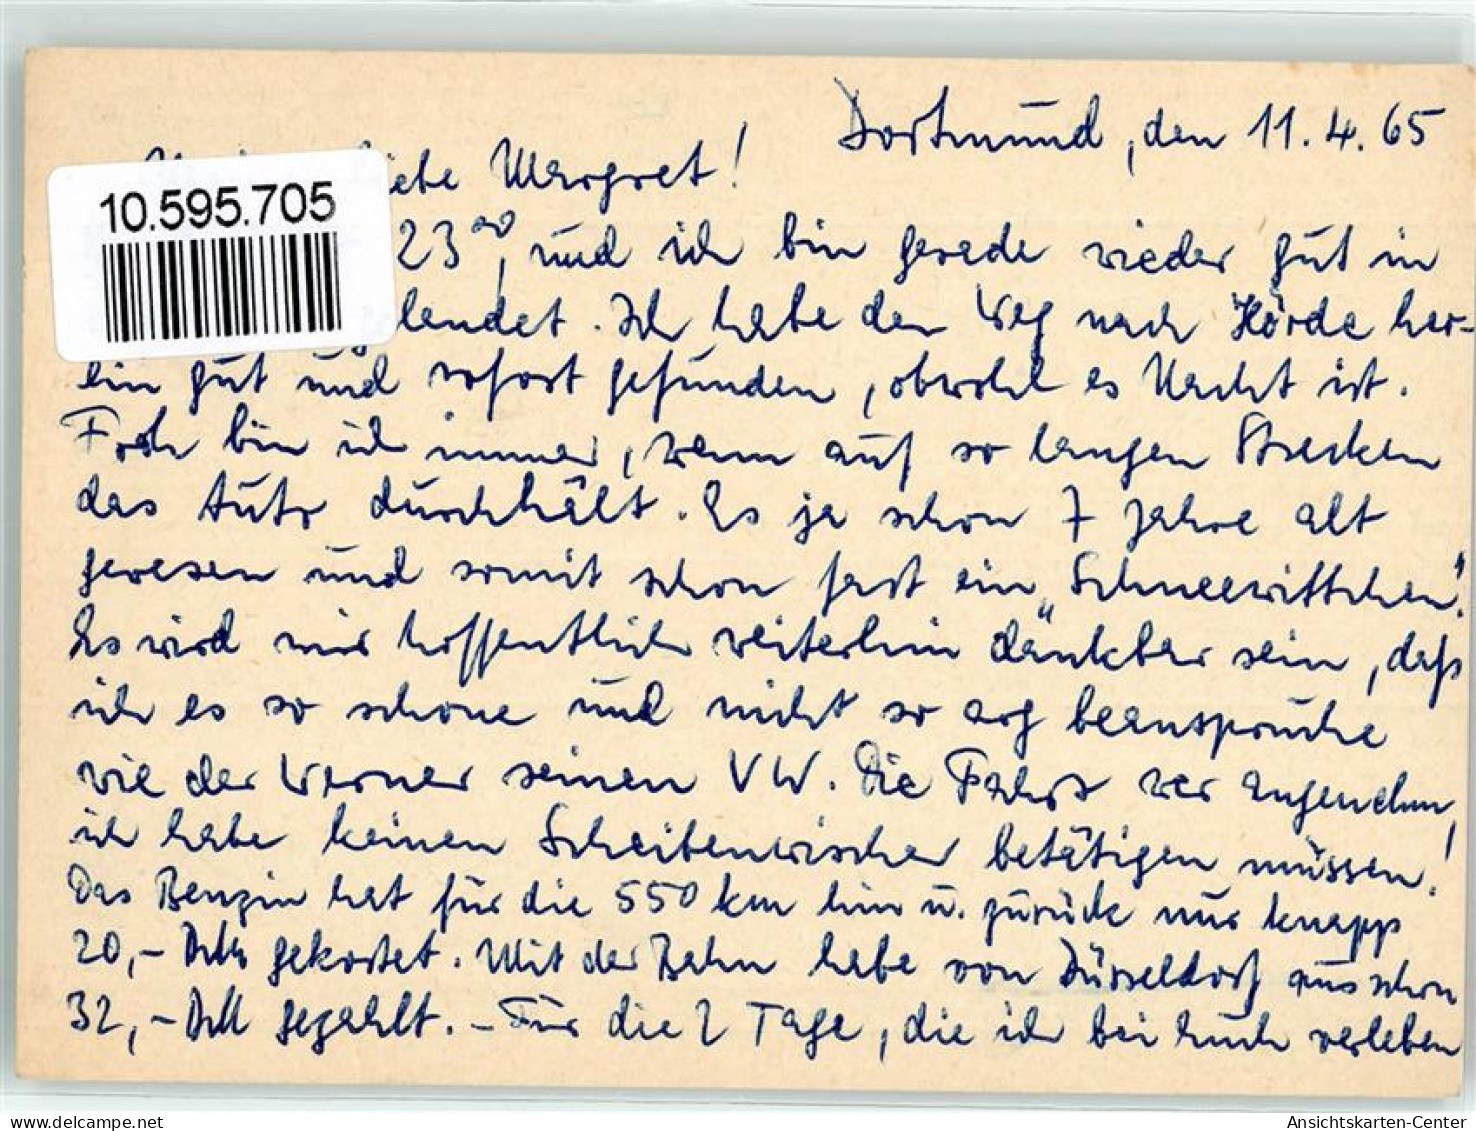 Dortmund, den 11.4.65
liebe Margret!
10.595.705
23⁰⁰, und ich bin gerade wieder gut in
gelandet. Ich habe den Weg nach Hörde her-
ein gut und sofort gefunden, obwohl es Nacht ist.
Froh bin ich immer, wenn auf so langen Strecken
das Auto durchhält. Es ja schon 7 Jahre alt
gewesen und somit schon fast ein „Schneewittchen".
Es wird mir hoffentlich weiterhin dankbar sein, daß
ich es so schone und nicht so arg beanspruche
wie der Werner seinen VW. Die Fahrt war angenehm,
ich habe keinen Scheibenwischer betätigen müssen!
Das Benzin hat für die 550 km hin u. zurück nur knapp
20,- DM gekostet. Mit der Bahn habe von Düsseldorf aus schon
32,- DM gezahlt. - Für die 2 Tage, die ich bei Euch verleben
Ansichtskarten-Center
delcampe.net